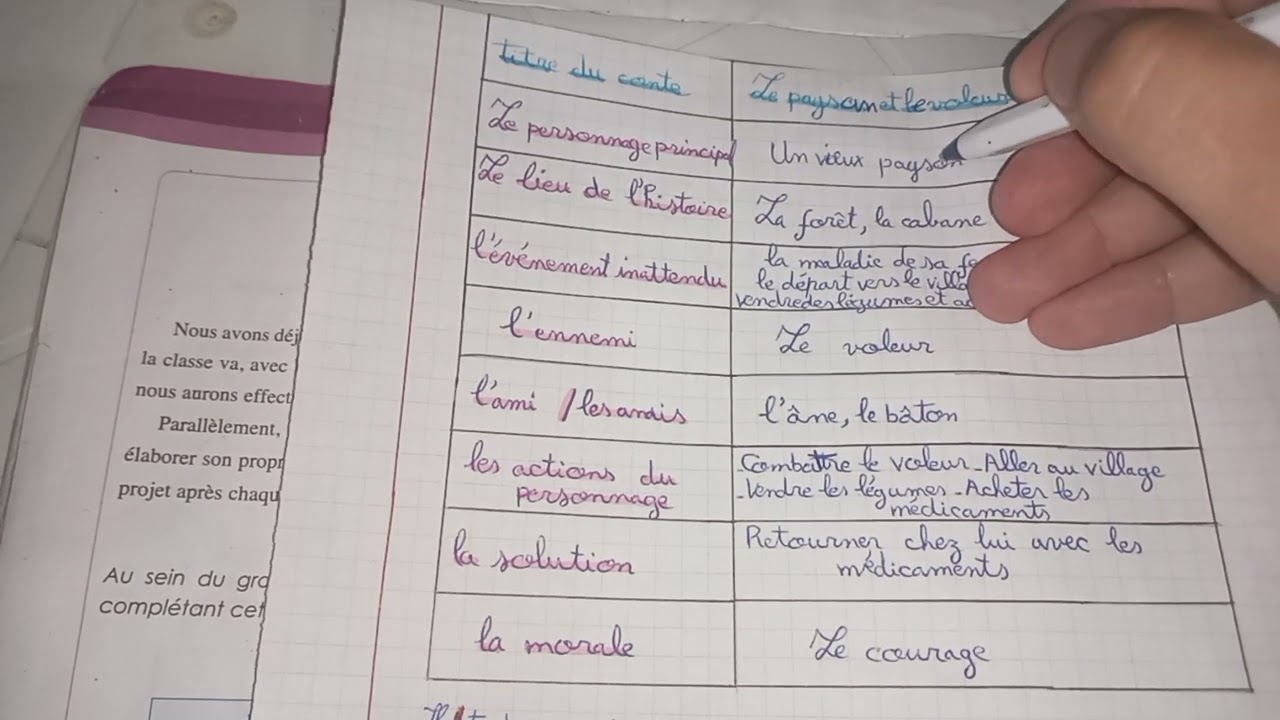 titre du conte
Le paysan et le voleur
Le personnage principal
Un vieux paysan
Le lieu de l'histoire
La forêt, la cabane
l'événement inattendu
la maladie de sa
le départ vers le
vendre des légumes et
l'ennemi
Le voleur
l'ami / les amis
l'âne, le bâton
les actions du
personnage
Combattre le voleur - Aller au village
- Vendre les légumes - Acheter les
médicaments
la solution
Retourner chez lui avec les
médicaments
la morale
Le courage
Nous avons déj
la classe va, avec
nous aurons effect
Parallèlement,
élaborer son propr
projet après chaqu
Au sein du gro
complétant cet